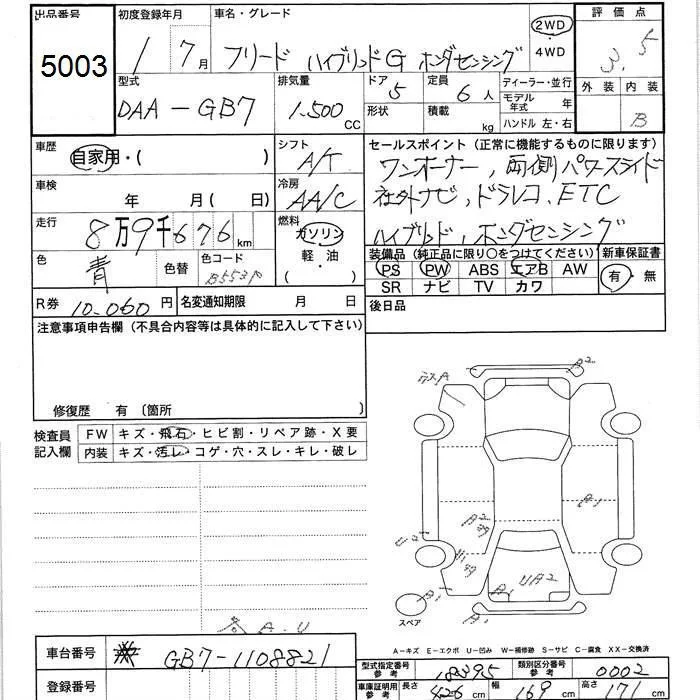 出品番号 初度登録年月 車名・グレード 評価点
5003 1 7月 フリード ハイブリッドG ホンダセンシング 2WD・4WD 3.5
型式 排気量 ドア 定員 ディーラー・並行 外装 内装
DAA-GB7 1.500 CC 5 6人 モデル年式 年 B
形状 積載 kg ハンドル 左・右
車歴 シフト セールスポイント(正常に機能するものに限ります)
自家用・( ) A/T ワンオーナー, 両側パワースライド
車検 年 月( 日) 冷房 AA/C 社外ナビ、ドラレコ、ETC
走行 8万9千676km 燃料 ガソリン ハイブリッド, ホンダセンシング
軽・油 ( )
色 青 色替 色コード B553P 装備品(純正品に限り○をつけてください) 新車保証書
PS PW ABS エアB AW 有・無
SR ナビ TV カワ
R券 10.060円 名変通知期限 月 日 後日品
注意事項申告欄(不具合内容等は具体的に記入して下さい)
修復歴 有〔箇所 〕
検査員 FW キズ・飛石・ヒビ割・リペア跡・X要
記入欄 内装 キズ・汚レ・コゲ・穴・スレ・キレ・破レ
A
B2
A1
B2
UA2
スペア
A-U
A-キズ E-エクボ U-凹み W-補修跡 S-サビ C-腐食 XX-交換済
車台番号 GB7-1108821
型式指定番号 参考 18395 類別区分番号 参考 0002
登録番号
車庫証明用 参考 長さ 426cm 幅 169cm 高さ 171cm